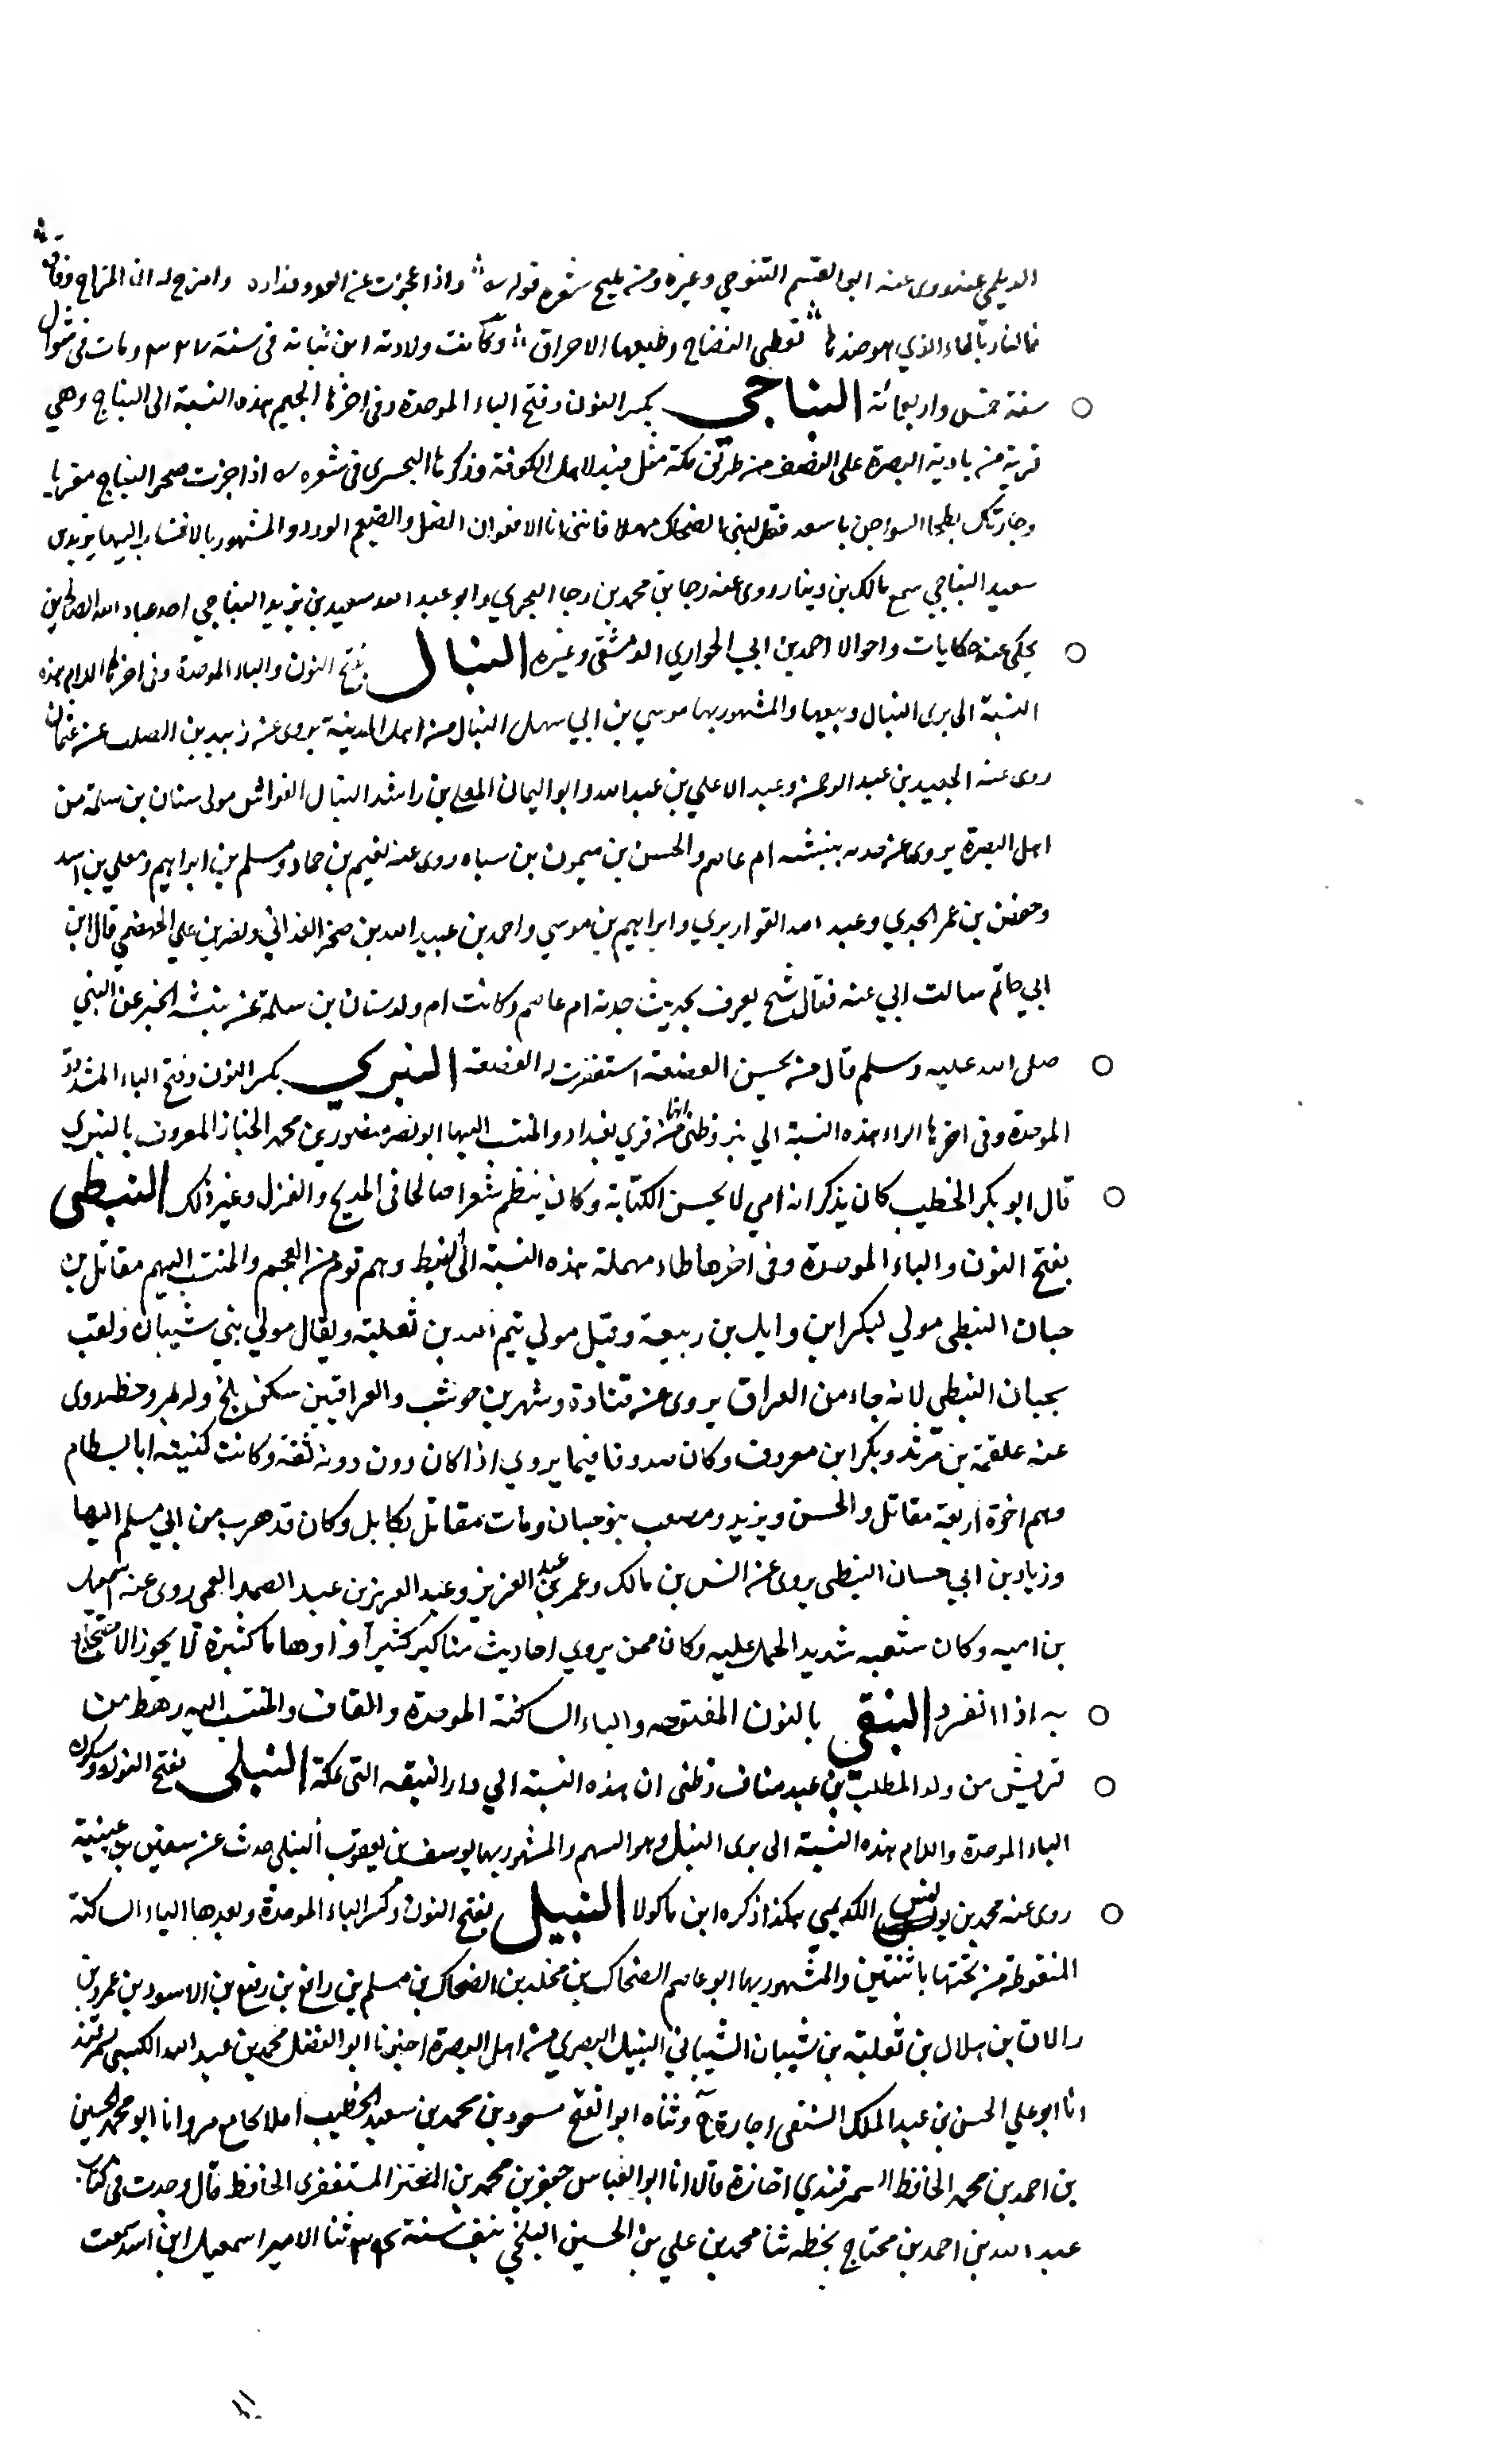 الديلمي عنه روى عنه ابو القسم التنوخي وغيره ومن مليح شعره قوله ه واذا عجزت عن العدو فداره وامزح له ان المزاح وفاق
فالنار بالماء الذي هو ضدها تعطي النضاج وطبعها الاحراق وكانت ولادته ابن نباتة في سنة ٣٢٧ ومات في شوال
سنة خمس واربعمائة النباجي بكسر النون وفتح الباء الموحدة وفي اخرها الجيم هذه النسبة الى النباج وهي
قرية من بادية البصرة على النصف من طريق مكة مثل فيد لاهل الكوفة وذكرها البحتري في شعره ه اذا جزت صحراء النباج مغربا
وجازتك بطحاء السواجن يا سعد فقل لبني الضحاك مهلا فانني انا الافعوان الصل والضيغم الورد والمشهور بالانتساب اليها يزيد بن
سعيد النباجي سمع مالك بن دينار روى عنه رجا بن محمد بن رجا البصري وابو عبد الله سعيد بن يزيد النباجي احد عباد الله الصالحين
يحكي عنه حكايات واحوالا احمد بن ابي الحواري الدمشقي وغيره النبال بفتح النون والباء الموحدة وفي اخرها اللام هذه
النسبة الى برى النبال وبيعها والمشهور بها موسي بن ابي سهل النبال من اهل المدينة يروى عن زبيد بن الصلت عن عثمان
روى عنه الجعيد بن عبد الرحمن وعبد الاعلي بن عبد الله وابو اليمان المعلي بن راشد النبال القواس مولى سنان بن سلمة من
اهل البصرة يروى عن جدته نبيشه ام عاصم والحسن بن ميمون بن سياه روى عنه نعيم بن حماد ومسلم بن ابراهيم ومعلي بن اسد
وحفص بن عمر الجدي وعبيد الله القواريري وابراهيم بن موسي واحمد بن عبيد الله بن صخر الغداني ونصر بن علي الجهضمي قال ابن
ابي حاتم سالت ابي عنه فقال شيخ يعرف بحديث جدته ام عاصم وكانت ام ولد سنان بن سلمة عن نبيشه الخبر عن النبي
صلى الله عليه وسلم قال من يحسن القصعة استغفرت له القصعة النبري بكسر النون وفتح الباء المشددة
الموحدة وفي اخرها الراء هذه النسبة الي نبر وظني انها من قري بغداد والمنتسب اليها ابو نصر منصور بن محمد الخباز المعروف بالنبري
قال ابو بكر الخطيب كان يذكر انه امي لا يحسن الكتابة وكان ينظم شعرا صالحا في المديح والغزل وغير ذلك النبطي
بفتح النون والباء الموحدة وفي اخرها طاء مهملة هذه النسبة الى النبط وهم قوم من العجم والمنتسب اليهم مقاتل بن
حبان النبطي مولي لبكر ابن وايل بن ربيعة وقيل مولي تيم الله بن ثعلبة ويقال مولي بني شيبان ولقب
بحبان النبطي لانه جاء من العراق يروى عن قتادة وشهر بن حوشب والعراقيين سكن بلخ وله بمرو خطة روى
عنه علقمة بن مرثد وبكر ابن معروف وكان صدوقا فيما يروي اذا كان دون دونه ثقة وكانت كنيته ابا بسطام
وهم اخوة اربعة مقاتل والحسن ويزيد ومصعب بنو حبان ومات مقاتل بكابل وكان قد هرب من ابي مسلم اليها
وزياد بن ابي حسان النبطي يروى عن انس بن مالك وعمر بن عبد العزيز وعبد العزيز بن عبد الصمد العمي روى عنه اسمعيل
بن اميه وكان شعبه شديد الحمل عليه وكان ممن يروي احاديث مناكير كثيرا واوهاما كثيرة لا يجوز الاحتجاج
به اذا انفرد النبقي بالنون المفتوحه والباء الساكنة الموحدة والقاف والمنتسب اليه رهط من
قريش من ولد المطلب بن عبد مناف وظني ان هذه النسبة الي دار النبقه التي بمكة النبلي بفتح النون وسكون
الباء الموحدة واللام هذه النسبة الى برى النبل وهو السهم والمشهور بها يوسف بن يعقوب النبلي حدث عن سفين بن عيينة
روى عنه محمد بن يونس الكديمي هكذا ذكره ابن ماكولا النبيل بفتح النون وكسر الباء الموحدة وبعدها الياء الساكنة
المنقوطة من تحتها باثنتين والمشهور بها ابو عاصم الضحاك بن مخلد بن الضحاك بن مسلم بن رافع بن رفيع بن الاسود بن عمرو بن
رالان بن هلال بن ثعلبة بن شيبان الشيباني النبيل البصري من اهل البصرة اخبرنا ابو الفضل محمد بن عبد الله الكسبي بسمرقند
انا ابو علي الحسن بن عبد الملك النسفي اجازة ح وثناه ابو الفتح مسعود بن محمد بن سعيد الخطيب املا بجامع مرو انا ابو محمد الحسين
بن احمد بن محمد الحافظ السمرقندي اجازة قالا انا ابو العباس جعفر بن محمد بن المعتز المستغفري الحافظ قال وجدت في كتاب
عبد الله بن احمد بن محتاج بخطه ثنا محمد بن علي بن الحسين البلخي بنسف سنة ثنا الامير اسمعيل ابن اسد سمعت